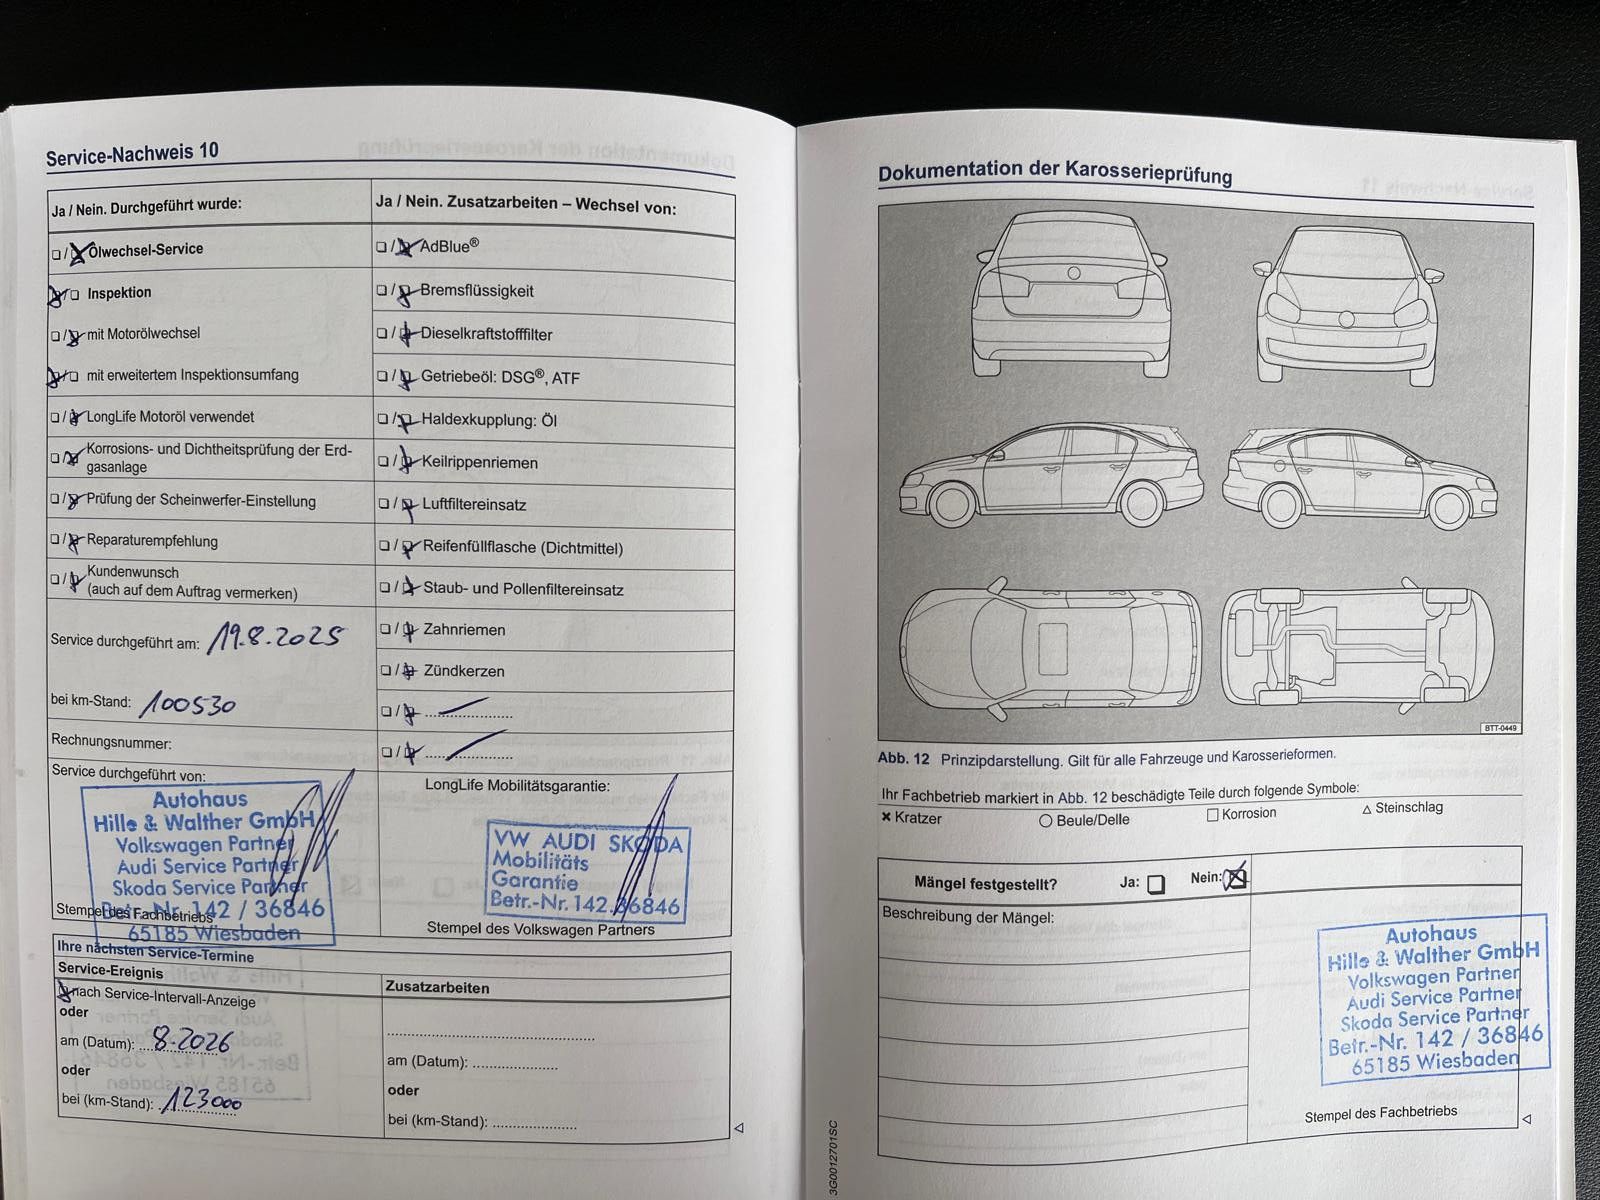 Service-Nachweis 10
Ja / Nein. Durchgeführt wurde:
❏ / ❏ Ölwechsel-Service
❏ / ❏ Inspektion
❏ / ❏ mit Motorölwechsel
❏ / ❏ mit erweitertem Inspektionsumfang
❏ / ❏ LongLife Motoröl verwendet
❏ / ❏ Korrosions- und Dichtheitsprüfung der Erd-
gasanlage
❏ / ❏ Prüfung der Scheinwerfer-Einstellung
❏ / ❏ Reparaturempfehlung
❏ / ❏ Kundenwunsch
(auch auf dem Auftrag vermerken)
Service durchgeführt am: 19.8.2025
bei km-Stand: 100530
Rechnungsnummer:
Service durchgeführt von:
Autohaus
Hille & Walther GmbH
Volkswagen Partner
Audi Service Partner
Skoda Service Partner
Betr.-Nr. 142 / 36846
65185 Wiesbaden
Stempel des Fachbetriebs
Ja / Nein. Zusatzarbeiten – Wechsel von:
❏ / ❏ AdBlue®
❏ / ❏ Bremsflüssigkeit
❏ / ❏ Dieselkraftstofffilter
❏ / ❏ Getriebeöl: DSG®, ATF
❏ / ❏ Haldexkupplung: Öl
❏ / ❏ Keilrippenriemen
❏ / ❏ Luftfiltereinsatz
❏ / ❏ Reifenfüllflasche (Dichtmittel)
❏ / ❏ Staub- und Pollenfiltereinsatz
❏ / ❏ Zahnriemen
❏ / ❏ Zündkerzen
❏ / ❏ ......................
❏ / ❏ ......................
LongLife Mobilitätsgarantie:
VW AUDI SKODA
Mobilitäts
Garantie
Betr.-Nr. 142.36846
Stempel des Volkswagen Partners
Ihre nächsten Service-Termine
Service-Ereignis
❏ nach Service-Intervall-Anzeige
oder
am (Datum): 8.2026
oder
bei (km-Stand): 123000
Zusatzarbeiten
......................................................
am (Datum): ......................
oder
bei (km-Stand): ......................
Dokumentation der Karosserieprüfung
BTT-0449
Abb. 12 Prinzipdarstellung. Gilt für alle Fahrzeuge und Karosserieformen.
Ihr Fachbetrieb markiert in Abb. 12 beschädigte Teile durch folgende Symbole:
✖ Kratzer ○ Beule/Delle □ Korrosion △ Steinschlag
Mängel festgestellt? Ja: ❏ Nein: ☒
Beschreibung der Mängel:
Autohaus
Hille & Walther GmbH
Volkswagen Partner
Audi Service Partner
Skoda Service Partner
Betr.-Nr. 142 / 36846
65185 Wiesbaden
Stempel des Fachbetriebs
3G0012701SC